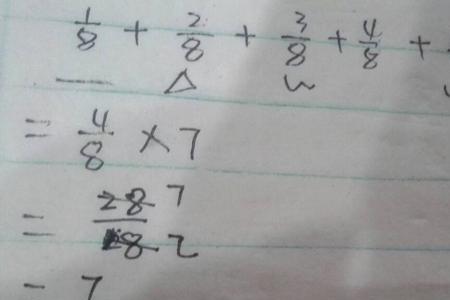 1/8 + 2/8 + 3/8 + 4/8 +
— △ ~
= 4/8 × 7
= 28/8 7 2
= 7